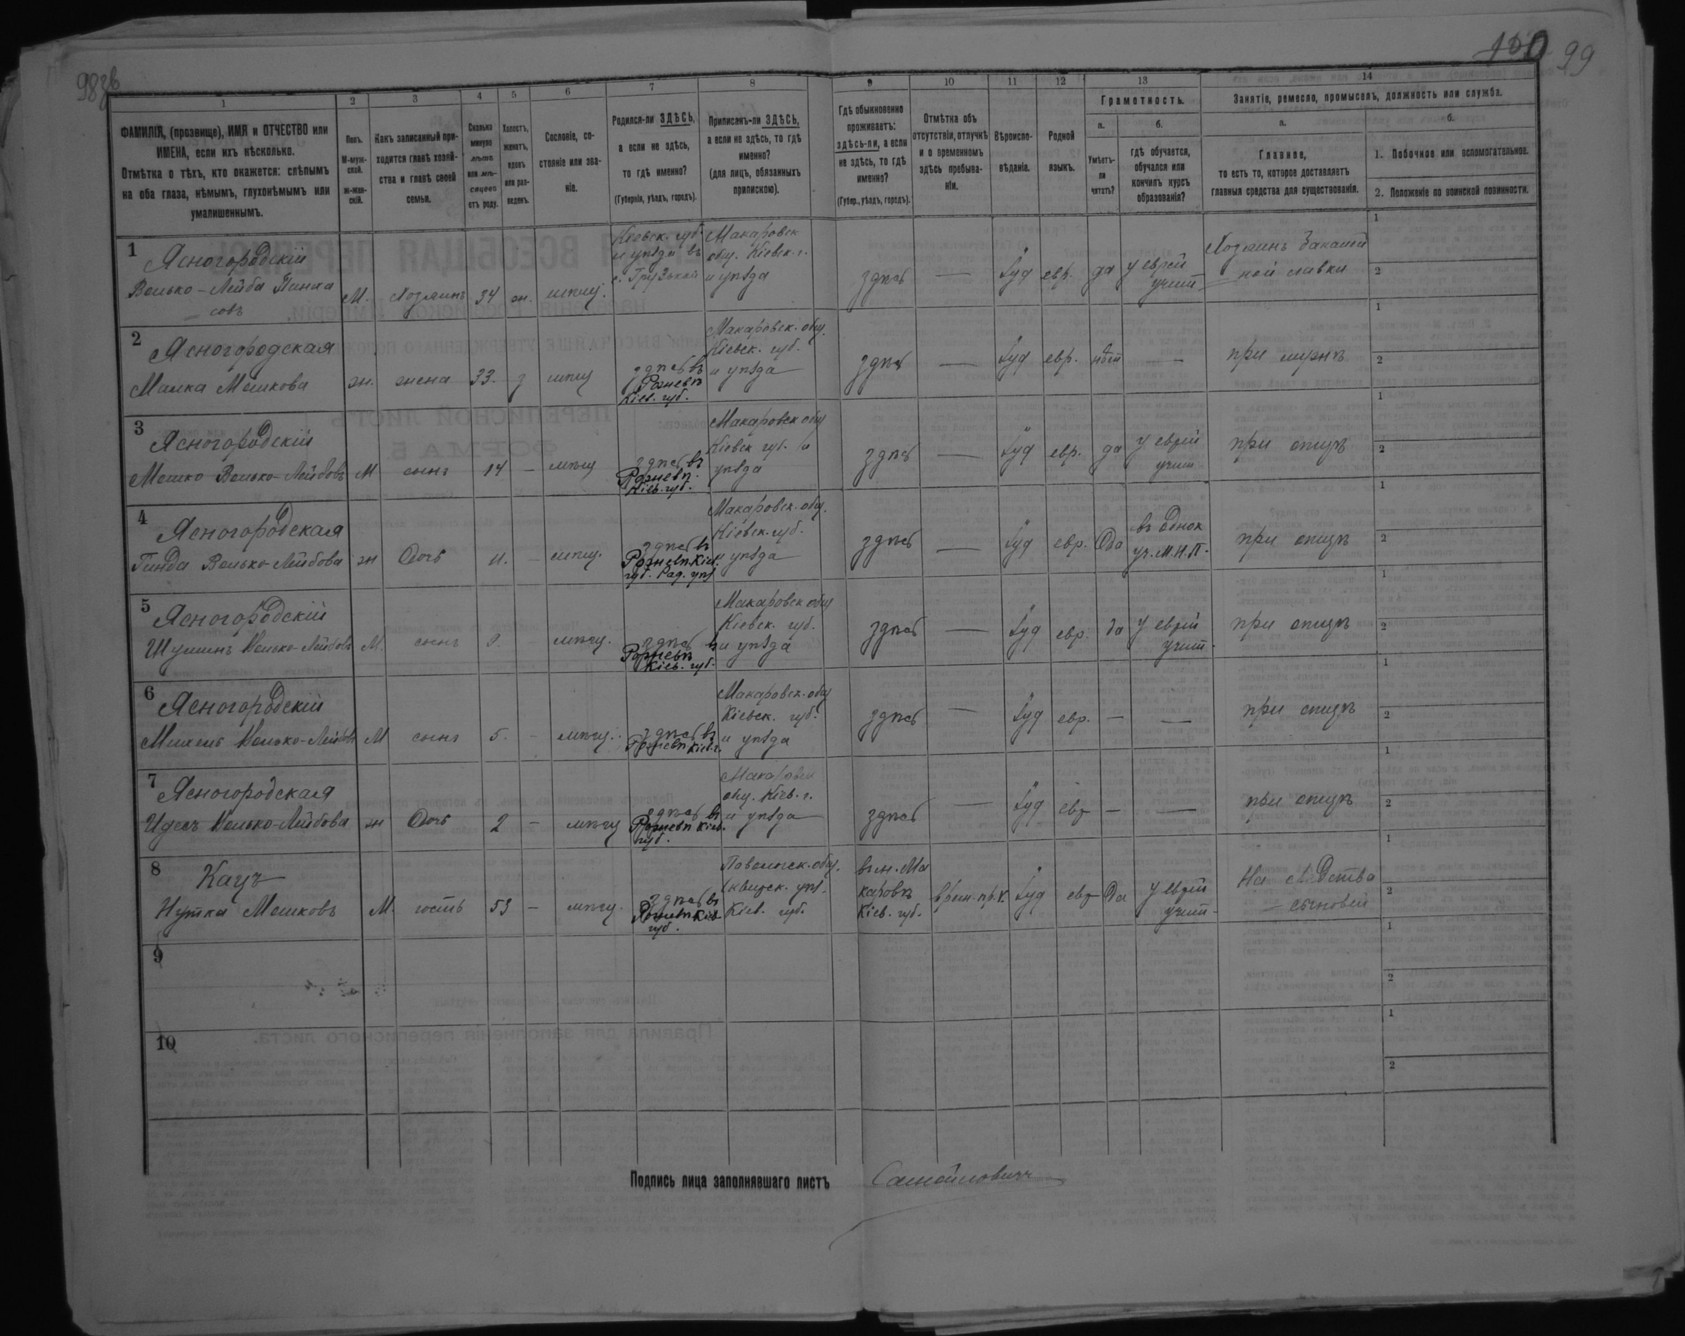 98зв
100 99
1
2
3
4
5
6
7
8
9
10
11
12
13
14
ФАМИЛІЯ, (прозвище), ИМЯ и ОТЧЕСТВО или
ИМЕНА, если ихъ нѣсколько.
Отмѣтка о тѣхъ, кто окажется: слѣпымъ
на оба глаза, нѣмымъ, глухонѣмымъ или
умалишеннымъ.
Полъ.
М-муж-
ской.
ж-жен-
скій.
Какъ записанный при-
ходится главѣ хозяй-
ства и главѣ своей
семьи.
Сколько
минуло
лѣтъ
или мѣ-
сяцевъ
отъ роду.
Холостъ,
женатъ,
вдовъ
или раз-
веденъ.
Сословіе, со-
стояніе или зва-
ніе.
Родился-ли ЗДѢСЬ,
а если не здѣсь,
то гдѣ именно?
(Губернія, уѣздъ, городъ).
Приписанъ-ли ЗДѢСЬ,
а если не здѣсь, то гдѣ
именно?
(для лицъ, обязанныхъ
припискою).
Гдѣ обыкновенно
проживаетъ:
здѣсь-ли, а если
не здѣсь, то гдѣ
именно?
(Губер., уѣздъ, городъ).
Отмѣтка объ
отсутствіи, отлучкѣ
и о временномъ
здѣсь пребыва-
ніи.
Вѣроиспо-
вѣданіе.
Родной
языкъ.
Грамотность.
а.
Умѣетъ-
ли
читать?
б.
гдѣ обучается,
обучался или
кончилъ курсъ
образованія?
Занятіе, ремесло, промыселъ, должность или служба.
а.
Главное,
то есть то, которое доставляетъ
главныя средства для существованія.
б.
1. Побочное или вспомогательное.
2. Положеніе по воинской повинности.
1
Ясногородскій
Волько-Лейба Пинка
совъ
М. Хозяинъ 34 ж. мѣщ.
Кіевск. губ.
и уѣзда въ
с. Грузской
Макаровск
общ. Кіевск. г.
и уѣзда
здѣсь — Іуд евр. да
у еврей
учит
Хозяинъ бакалей
ной лавки
1
2
2
Ясногородская
Малка Мошкова
ж. жена 33. з мѣщ
здѣсь въ
Рожевѣ
Кіев. губ.
Макаровск. общ.
Кіевск. губ.
и уѣзда
здѣсь — Іуд евр. нѣт —
при мужѣ
1
2
3
Ясногородскій
Мошко Волько-Лейбовъ
М сынъ 14 — мѣщ
здѣсь въ
Рожевѣ
Кіев. губ.
Макаровск общ
Кіевск губ. и
уѣзда
здѣсь — Іуд евр. да
у еврей
учит
при отцѣ
1
2
4
Ясногородская
Гинда Волько-Лейбова
ж Дочь 11. — мѣщ.
здѣсь въ
Рожевѣ Кіев.
губ. Рад. уѣз
Макаровск. общ.
Кіевск. губ.
и уѣзда
здѣсь — Іуд евр. Да
въ однок
уч. М.Н.П.
при отцѣ
1
2
5
Ясногородскій
Шулимъ Волько-Лейбовъ
М. сынъ — мѣщ.
здѣсь въ
Рожевѣ
Кіев. губ.
Макаровск общ
Кіевск. губ.
и уѣзда
здѣсь — Іуд евр. да
у еврей
учит.
при отцѣ
1
2
6
Ясногородскій
Михель Волько-Лейбовъ
М сынъ 5. — мѣщ.
здѣсь въ
Рожевѣ Кіев г.
Макаровск. общ
Кіевск. губ.
и уѣзда
здѣсь — Іуд евр. — —
при отцѣ
1
2
7
Ясногородская
Идесъ Волько-Лейбова
ж Дочь 2 — мѣщ
здѣсь въ
Рожевѣ Кіев.
губ.
Макаровск
общ. Кіев. г.
и уѣзда
здѣсь — Іуд евр — —
при отцѣ
1
2
8
Кацъ
Нутка Мошковъ
М. гость 53 — мѣщ.
здѣсь въ
Рожевѣ Кіев
губ.
Паволочск. общ.
Сквирск. уѣз.
Кіев. губ.
въ м. Ма
каровѣ
Кіев. губ.
врем. пр. Іуд евр Да
у еврей
учит.
На средства
сыновей
1
2
9
1
2
10
1
2
Подпись лица заполнявшаго листъ Самойловичъ